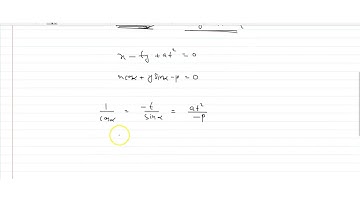 x - ty + at² = 0
x cosα + y sinα - p = 0
1/cosα = -t/sinα = at²/-p